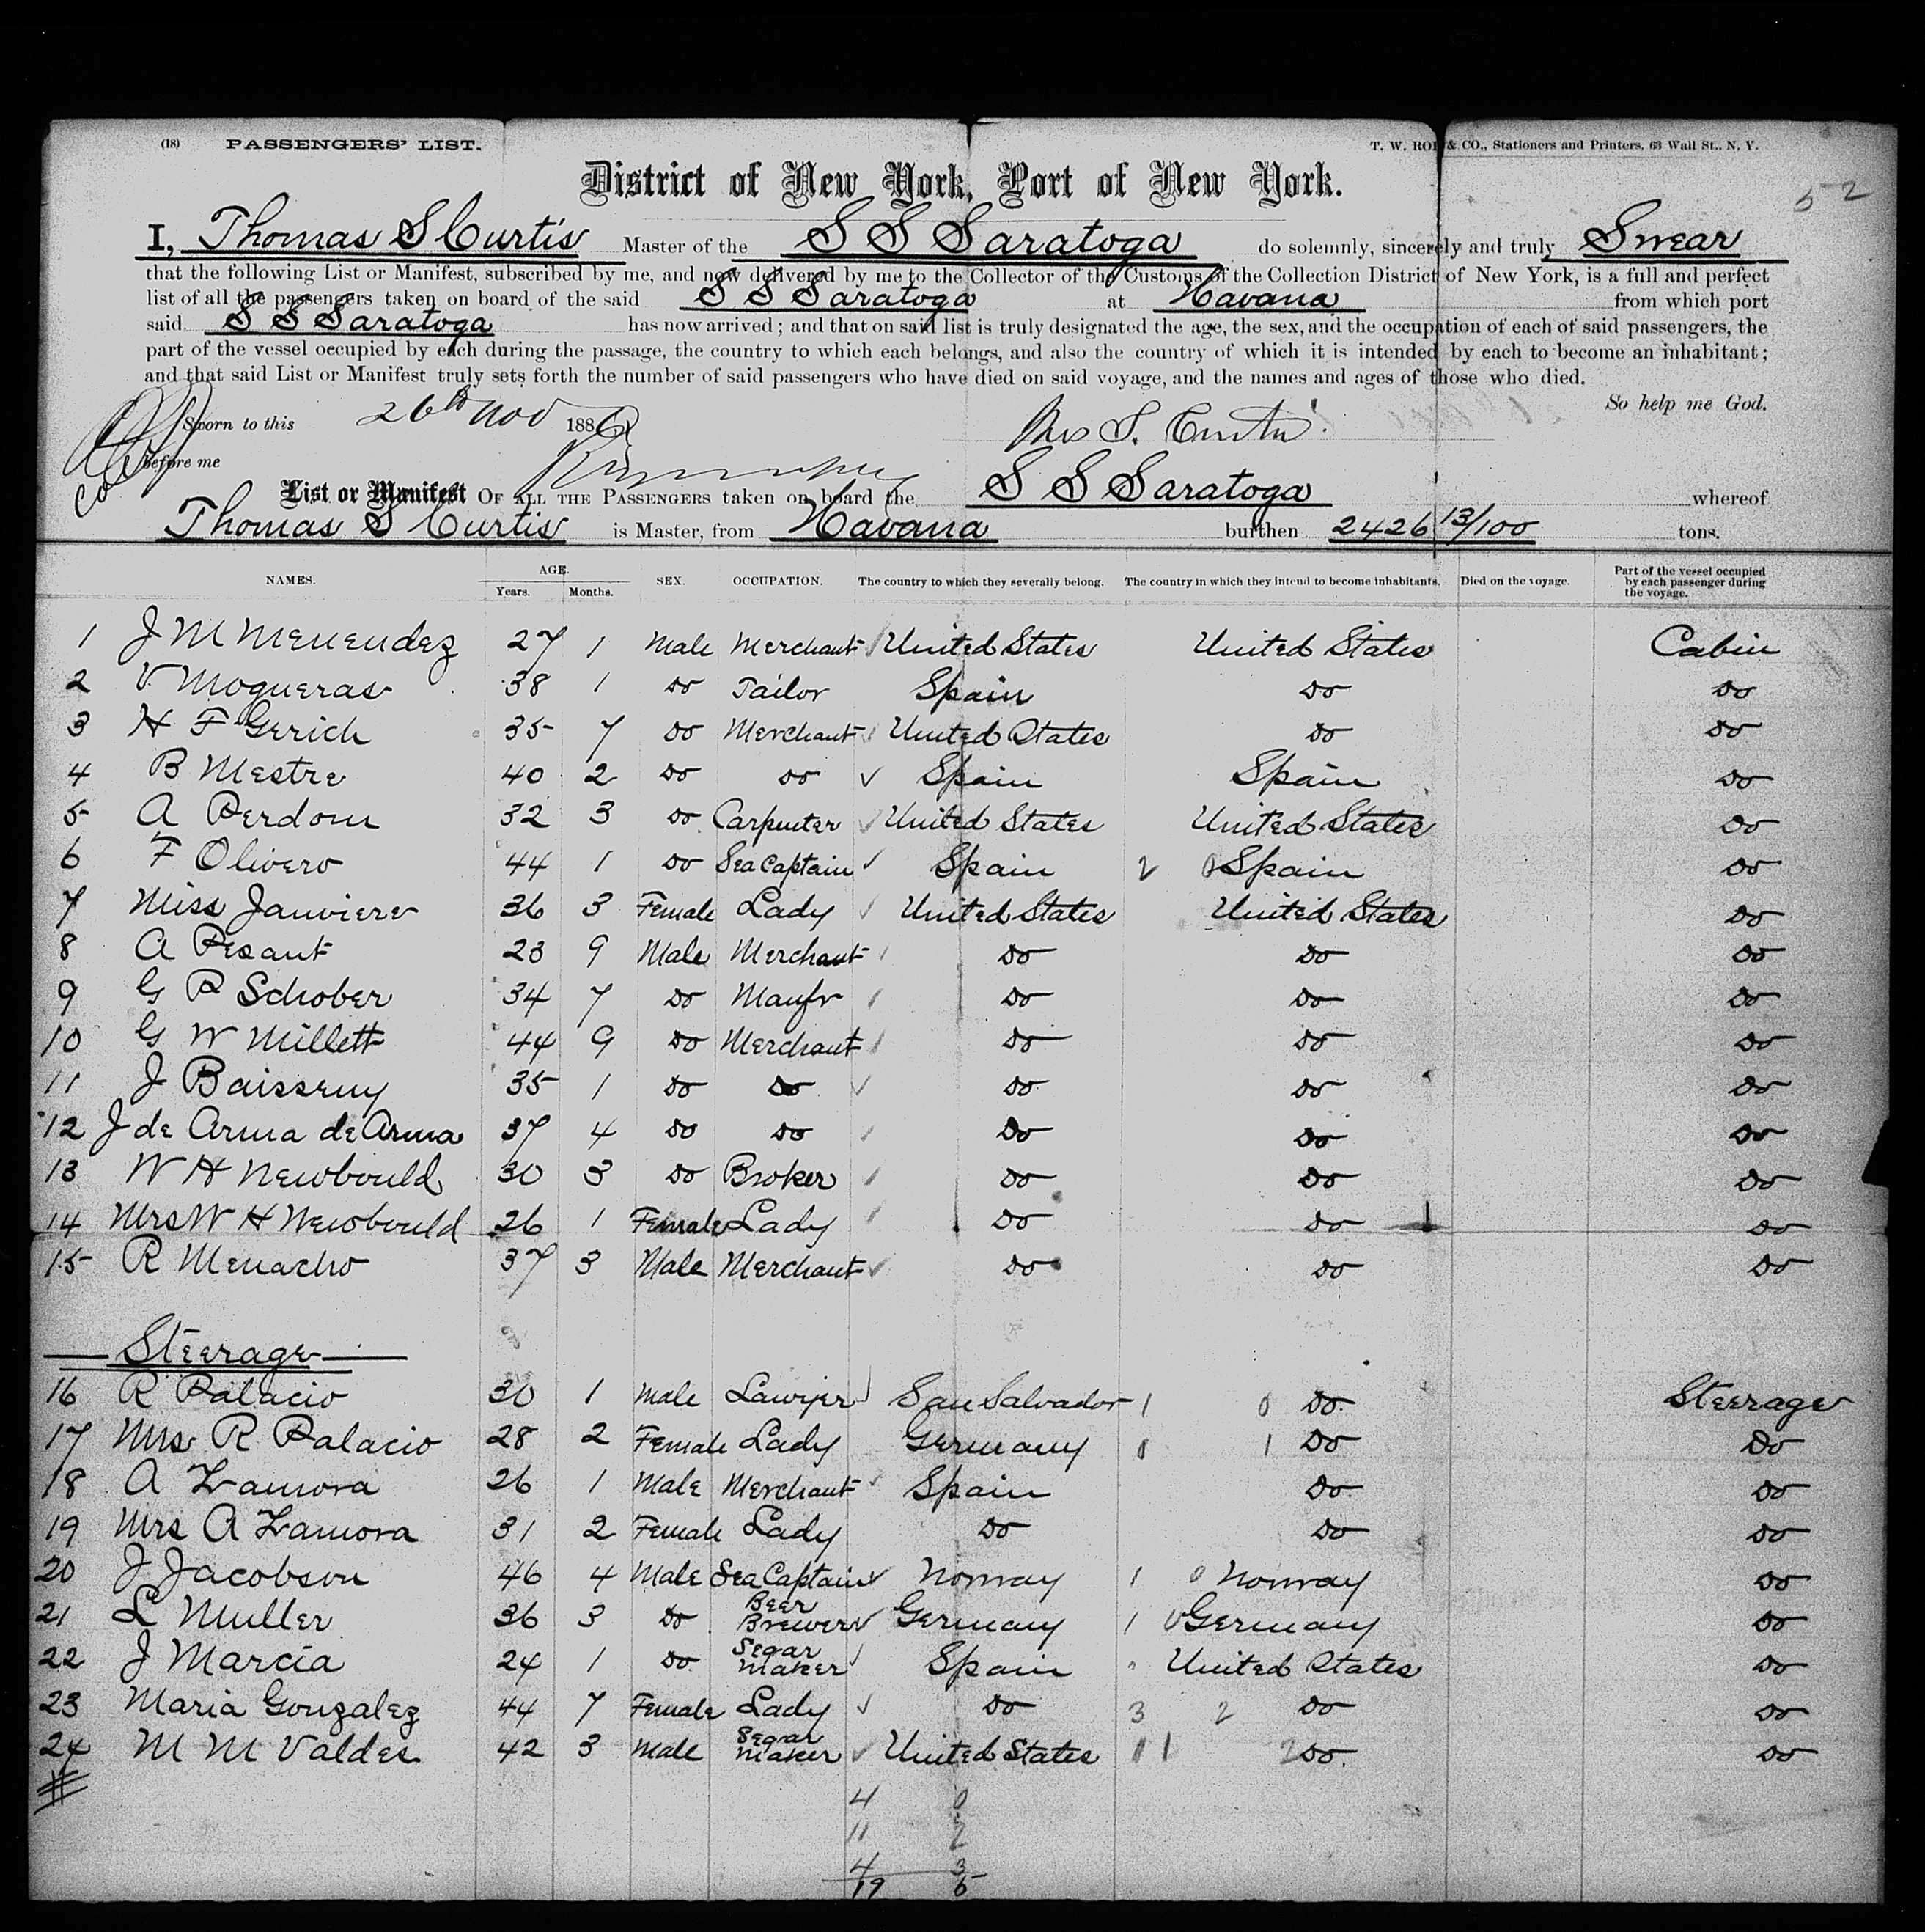 (18) PASSENGERS' LIST. T. W. & CO., Stationers and Printers, 63 Wall St., N. Y.
District of New York, Port of New York.
52
I, Thomas S Curtis Master of the S S Saratoga do solemnly, sincerely and truly Swear
that the following List or Manifest, subscribed by me, and now delivered by me to the Collector of the Customs of the Collection District of New York, is a full and perfect
list of all the passengers taken on board of the said S S Saratoga at Havana from which port
said S S Saratoga has now arrived; and that on said list is truly designated the age, the sex, and the occupation of each of said passengers, the
part of the vessel occupied by each during the passage, the country to which each belongs, and also the country of which it is intended by each to become an inhabitant;
and that said List or Manifest truly sets forth the number of said passengers who have died on said voyage, and the names and ages of those who died.
So help me God.
Sworn to this 26th Nov 1886 Thos S. Curtis
before me
List or Manifest OF ALL THE PASSENGERS taken on board the S S Saratoga whereof
Thomas S Curtis is Master, from Havana burthen 2426 13/100 tons.
NAMES. AGE. Years. Months. SEX. OCCUPATION. The country to which they severally belong. The country in which they intend to become inhabitants. Died on the voyage. Part of the vessel occupied by each passenger during the voyage.
1 J M Menendez 27 1 Male Merchant United States United States Cabin
2 V Mogueras 38 1 Do Tailor Spain Do Do
3 H F Gerich 35 7 Do Merchant United States Do Do
4 B Mestre 40 2 Do Do Spain Spain Do
5 A Perdom 32 3 Do Carpenter United States United States Do
6 F Olivero 44 1 Do Sea Captain Spain 2 0 Spain Do
7 Miss Janvierr 36 3 Female Lady United States United States Do
8 A Pesant 23 9 Male Merchant Do Do Do
9 G P Schober 34 7 Do Manfr Do Do Do
10 G W Millett 44 9 Do Merchant Do Do Do
11 J Baisseny 35 1 Do Do Do Do Do
12 J de Arma de Arma 37 4 Do Do Do Do Do
13 W H Newbould 30 3 Do Broker Do Do Do
14 Mrs W H Newbould 26 1 Female Lady Do Do Do
15 R Menacho 37 3 Male Merchant Do Do Do
Steerage
16 R Palacio 30 1 Male Lawyer San Salvador 1 0 Do Steerage
17 Mrs R Palacio 28 2 Female Lady Germany 0 1 Do Do
18 A Zamora 26 1 Male Merchant Spain Do Do
19 Mrs A Zamora 31 2 Female Lady Do Do Do
20 J Jacobson 46 4 Male Sea Captain Norway 1 0 Norway Do
21 L Muller 36 3 Do Beer Brewer Germany 1 0 Germany Do
22 J Marcia 24 1 Do Segar Maker Spain United States Do
23 Maria Gonzalez 44 7 Female Lady Do 3 2 Do Do
24 M M Valdes 42 3 Male Segar Maker United States 11 2 Do Do
4 0
11 2
4 3
19 5